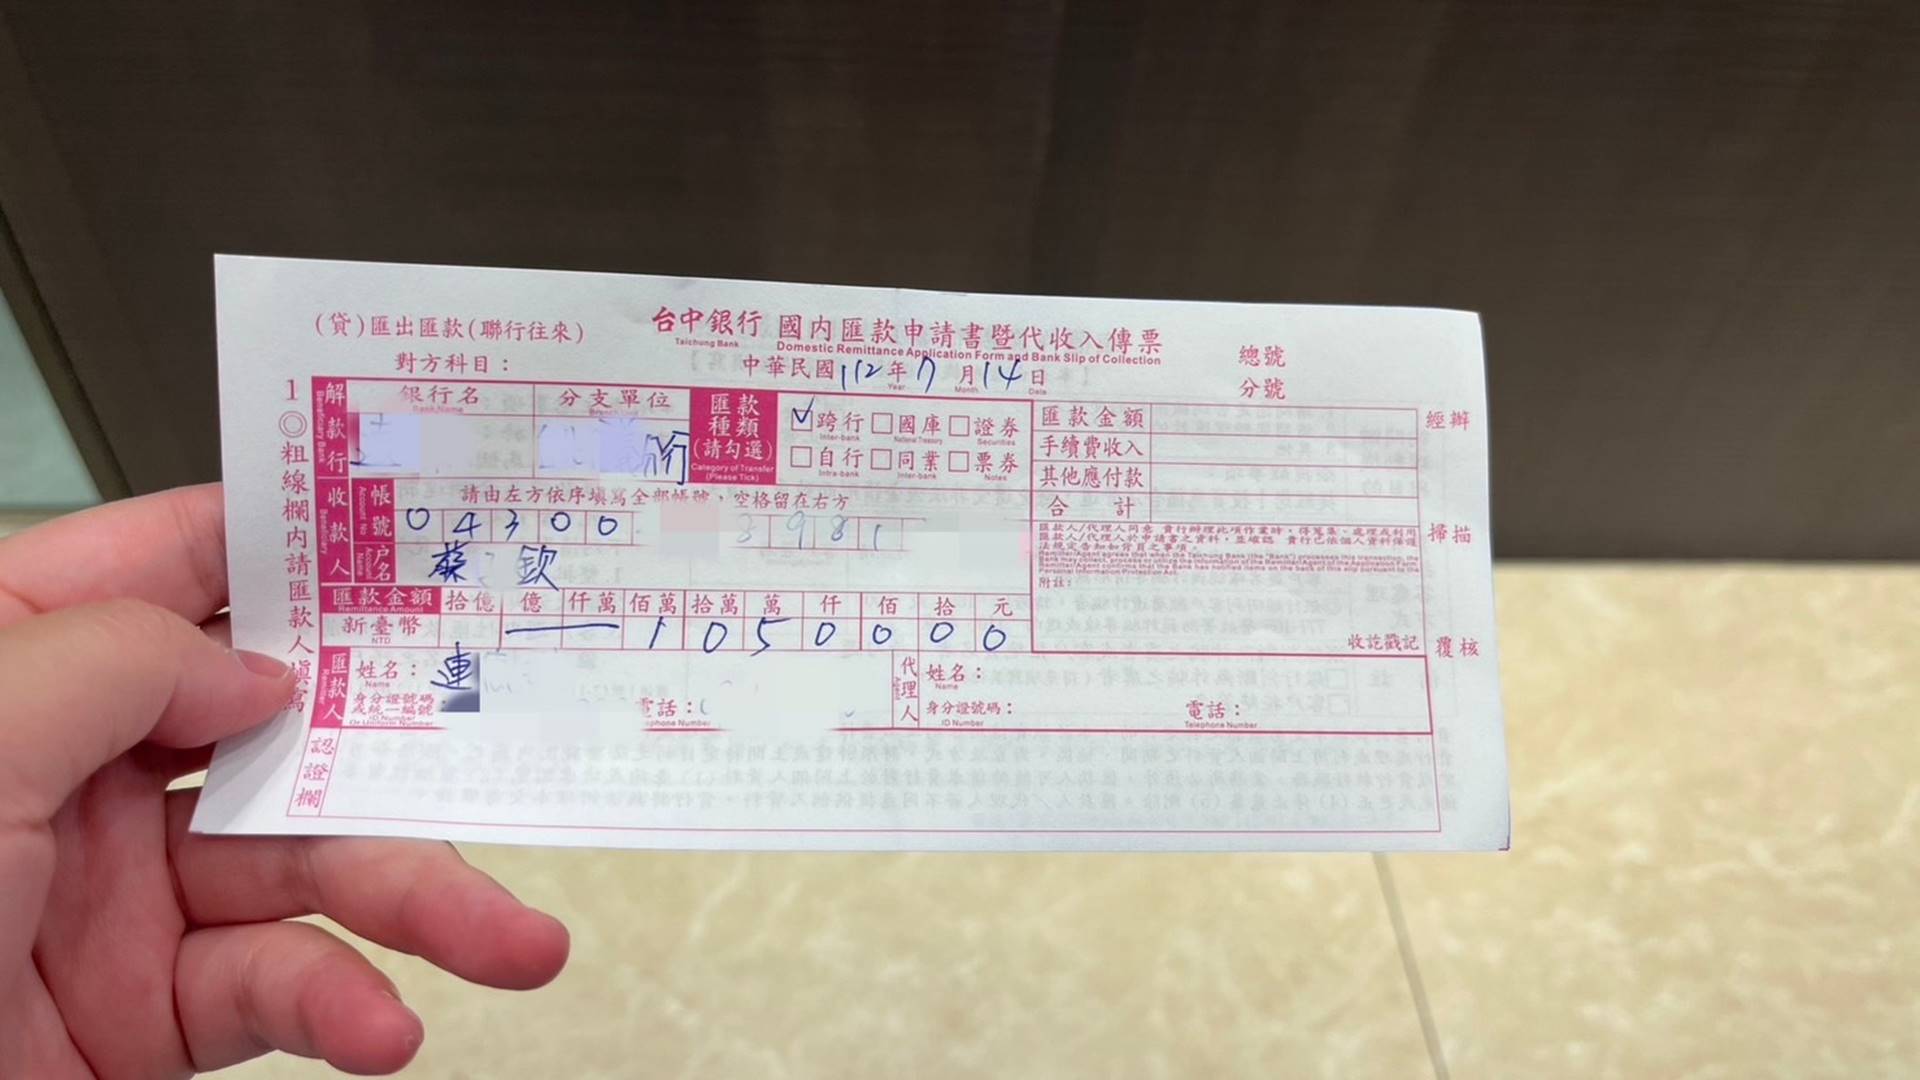 (貸)匯出匯款(聯行往來)
台中銀行 國內匯款申請書暨代收入傳票
Taichung Bank Domestic Remittance Application Form and Bank Slip of Collection
對方科目：
中華民國112年7月14日
Year Month Date
總號
分號
1◎粗線欄內請匯款人填寫
解款行
Beneficiary Bank
銀行名 分支單位
Bank Name
分行
匯款種類(請勾選)
Category of Transfer (Please Tick)
✓跨行 □國庫 □證券
Inter-bank National Treasury Securities
□自行 □同業 □票券
Intra-bank Inter-bank Notes
匯款金額
手續費收入
其他應付款
合計
經辦
收款人
Beneficiary
帳號
Account No
請由左方依序填寫全部帳號，空格留在右方
04300 8981
戶名
Account Name
蘇 欽
匯款人/代理人同意 貴行辦理此項作業時，得蒐集、處理或利用
匯款人/代理人於申請書之資料，並確認 貴行已依個人資料保護
法規定告知如背頁之事項。
Remitter/Agent agrees that when the Taichung Bank (the "Bank") processes this transaction, the
Bank may collect, process or utilize the information of the Remitter/Agent of the Application Form.
Remitter/Agent confirms that the Bank has notified items on the back of this slip pursuant to the
Personal Information Protection Act.
附註：
掃描
匯款金額 拾億 億 仟萬 佰萬 拾萬 萬 仟 佰 拾 元
Remittance Amount
新臺幣 1 0 5 0 0 0 0
NTD
收訖戳記
覆核
匯款人
Remitter
姓名：連
Name
身分證號碼或統一編號：
ID Number Or Uniform Number
電話：
代理人
Agent
姓名：
Name
身分證號碼：
ID Number
電話：
Telephone Number
認證欄